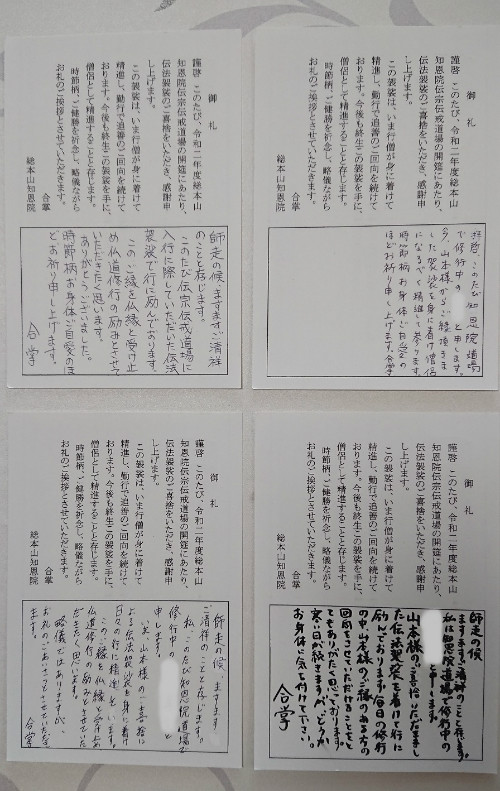 御 礼
謹啓 このたび、令和二年度総本山
知恩院伝宗伝戒道場の開筵にあたり、
伝法袈裟のご喜捨をいただき、感謝申
し上げます。
この袈裟は、いま行僧が身に着けて
精進し、勤行で追善のご回向を続けて
おります。今後も終生この袈裟を手に、
僧侶として精進することと存じます。
時節柄、ご健勝を祈念し、略儀ながら
お礼のご挨拶とさせていただきます。
合掌
総本山知恩院
師走の候、ますますご清祥
のことと存じます。
このたび伝宗伝戒道場に
入行に際していただいた伝法
袈裟で行に励んでおります。
このご縁を仏縁と受け止
め仏道修行の励みとさせて
いただきたく思います。
ありがとうございました。
時節柄お身体ご自愛のほ
どお祈り申し上げます。
合掌
御 礼
謹啓 このたび、令和二年度総本山
知恩院伝宗伝戒道場の開筵にあたり、
伝法袈裟のご喜捨をいただき、感謝申
し上げます。
この袈裟は、いま行僧が身に着けて
精進し、勤行で追善のご回向を続けて
おります。今後も終生この袈裟を手に、
僧侶として精進することと存じます。
時節柄、ご健勝を祈念し、略儀ながら
お礼のご挨拶とさせていただきます。
合掌
総本山知恩院
拝啓、このたび知恩院道場
で修行中の と申します。
今、山本様からご縁頂きま
した袈裟を身に着け僧侶
になるべく精進して参ります。
時節柄お身体ご自愛の
ほどお祈り申し上げます。合掌
御 礼
謹啓 このたび、令和二年度総本山
知恩院伝宗伝戒道場の開筵にあたり、
伝法袈裟のご喜捨をいただき、感謝申
し上げます。
この袈裟は、いま行僧が身に着けて
精進し、勤行で追善のご回向を続けて
おります。今後も終生この袈裟を手に、
僧侶として精進することと存じます。
時節柄、ご健勝を祈念し、略儀ながら
お礼のご挨拶とさせていただきます。
合掌
総本山知恩院
師走の候、ますます
ご清祥のことと存じます。
私、このたび知恩院道場で
修行中の と
申します。
いま、山本様のご喜捨に
よる伝法袈裟を身に着け
日々の行に精進しています。
このご縁を仏縁と受け止め
仏道修行の励みとさせていた
だきたく思います。
略儀ではありますが、
お礼のごあいさつとさせていただき
ます。
合掌
御 礼
謹啓 このたび、令和二年度総本山
知恩院伝宗伝戒道場の開筵にあたり、
伝法袈裟のご喜捨をいただき、感謝申
し上げます。
この袈裟は、いま行僧が身に着けて
精進し、勤行で追善のご回向を続けて
おります。今後も終生この袈裟を手に、
僧侶として精進することと存じます。
時節柄、ご健勝を祈念し、略儀ながら
お礼のご挨拶とさせていただきます。
合掌
総本山知恩院
師走の候
ますますご清祥のことと存じます。
私は知恩院道場で修行中の
と申します。
山本様のご喜捨いただきまし
た伝法袈裟を着けて行に
励んでおります。毎日の修行
の中、山本様のご縁のある方の
回向をさせていただけることとて
もありがたく思っております。
寒い日が続きますが、どうか
お身体に気を付けて下さい。
合掌